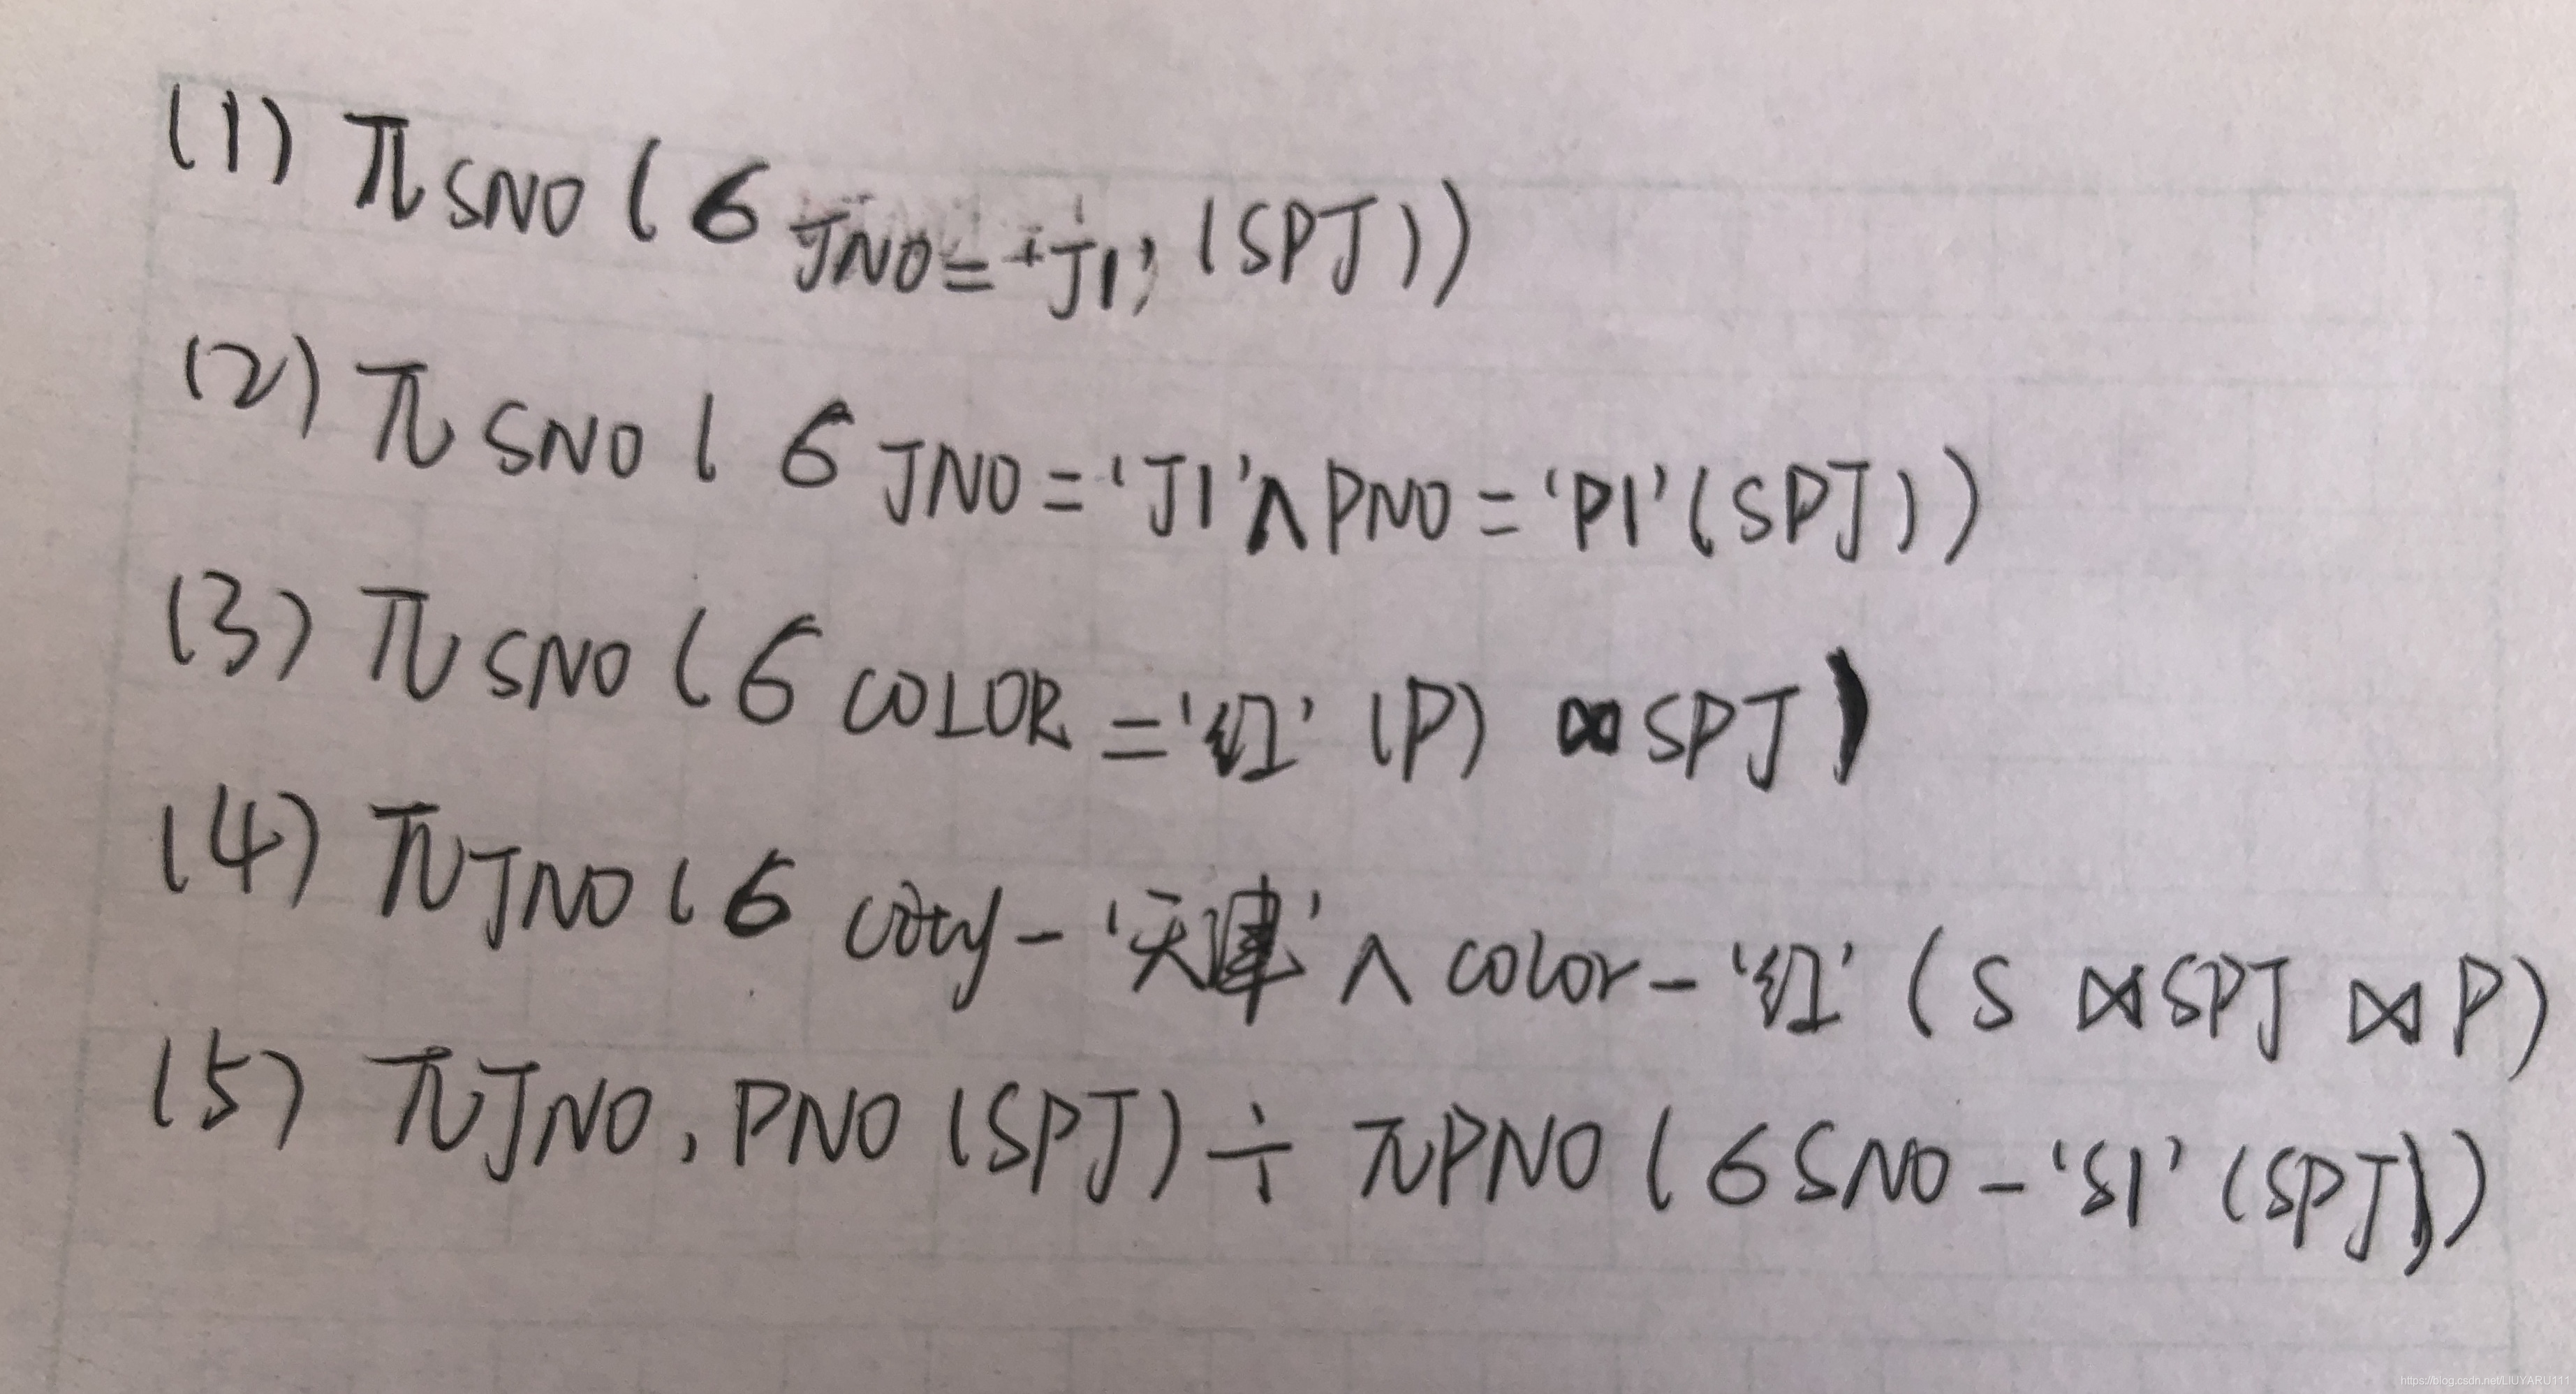 (1) πSNO(σJNO='J1'(SPJ))
(2) πSNO(σJNO='J1'∧PNO='P1'(SPJ))
(3) πSNO(σCOLOR='红'(P) ⋈ SPJ)
(4) πJNO(σ city-'天津'∧ color-'红' (S ⋈ SPJ ⋈ P)
(5) πJNO,PNO(SPJ) ÷ πPNO(σSNO-'S1'(SPJ))
https://blog.csdn.net/LIUYARU111